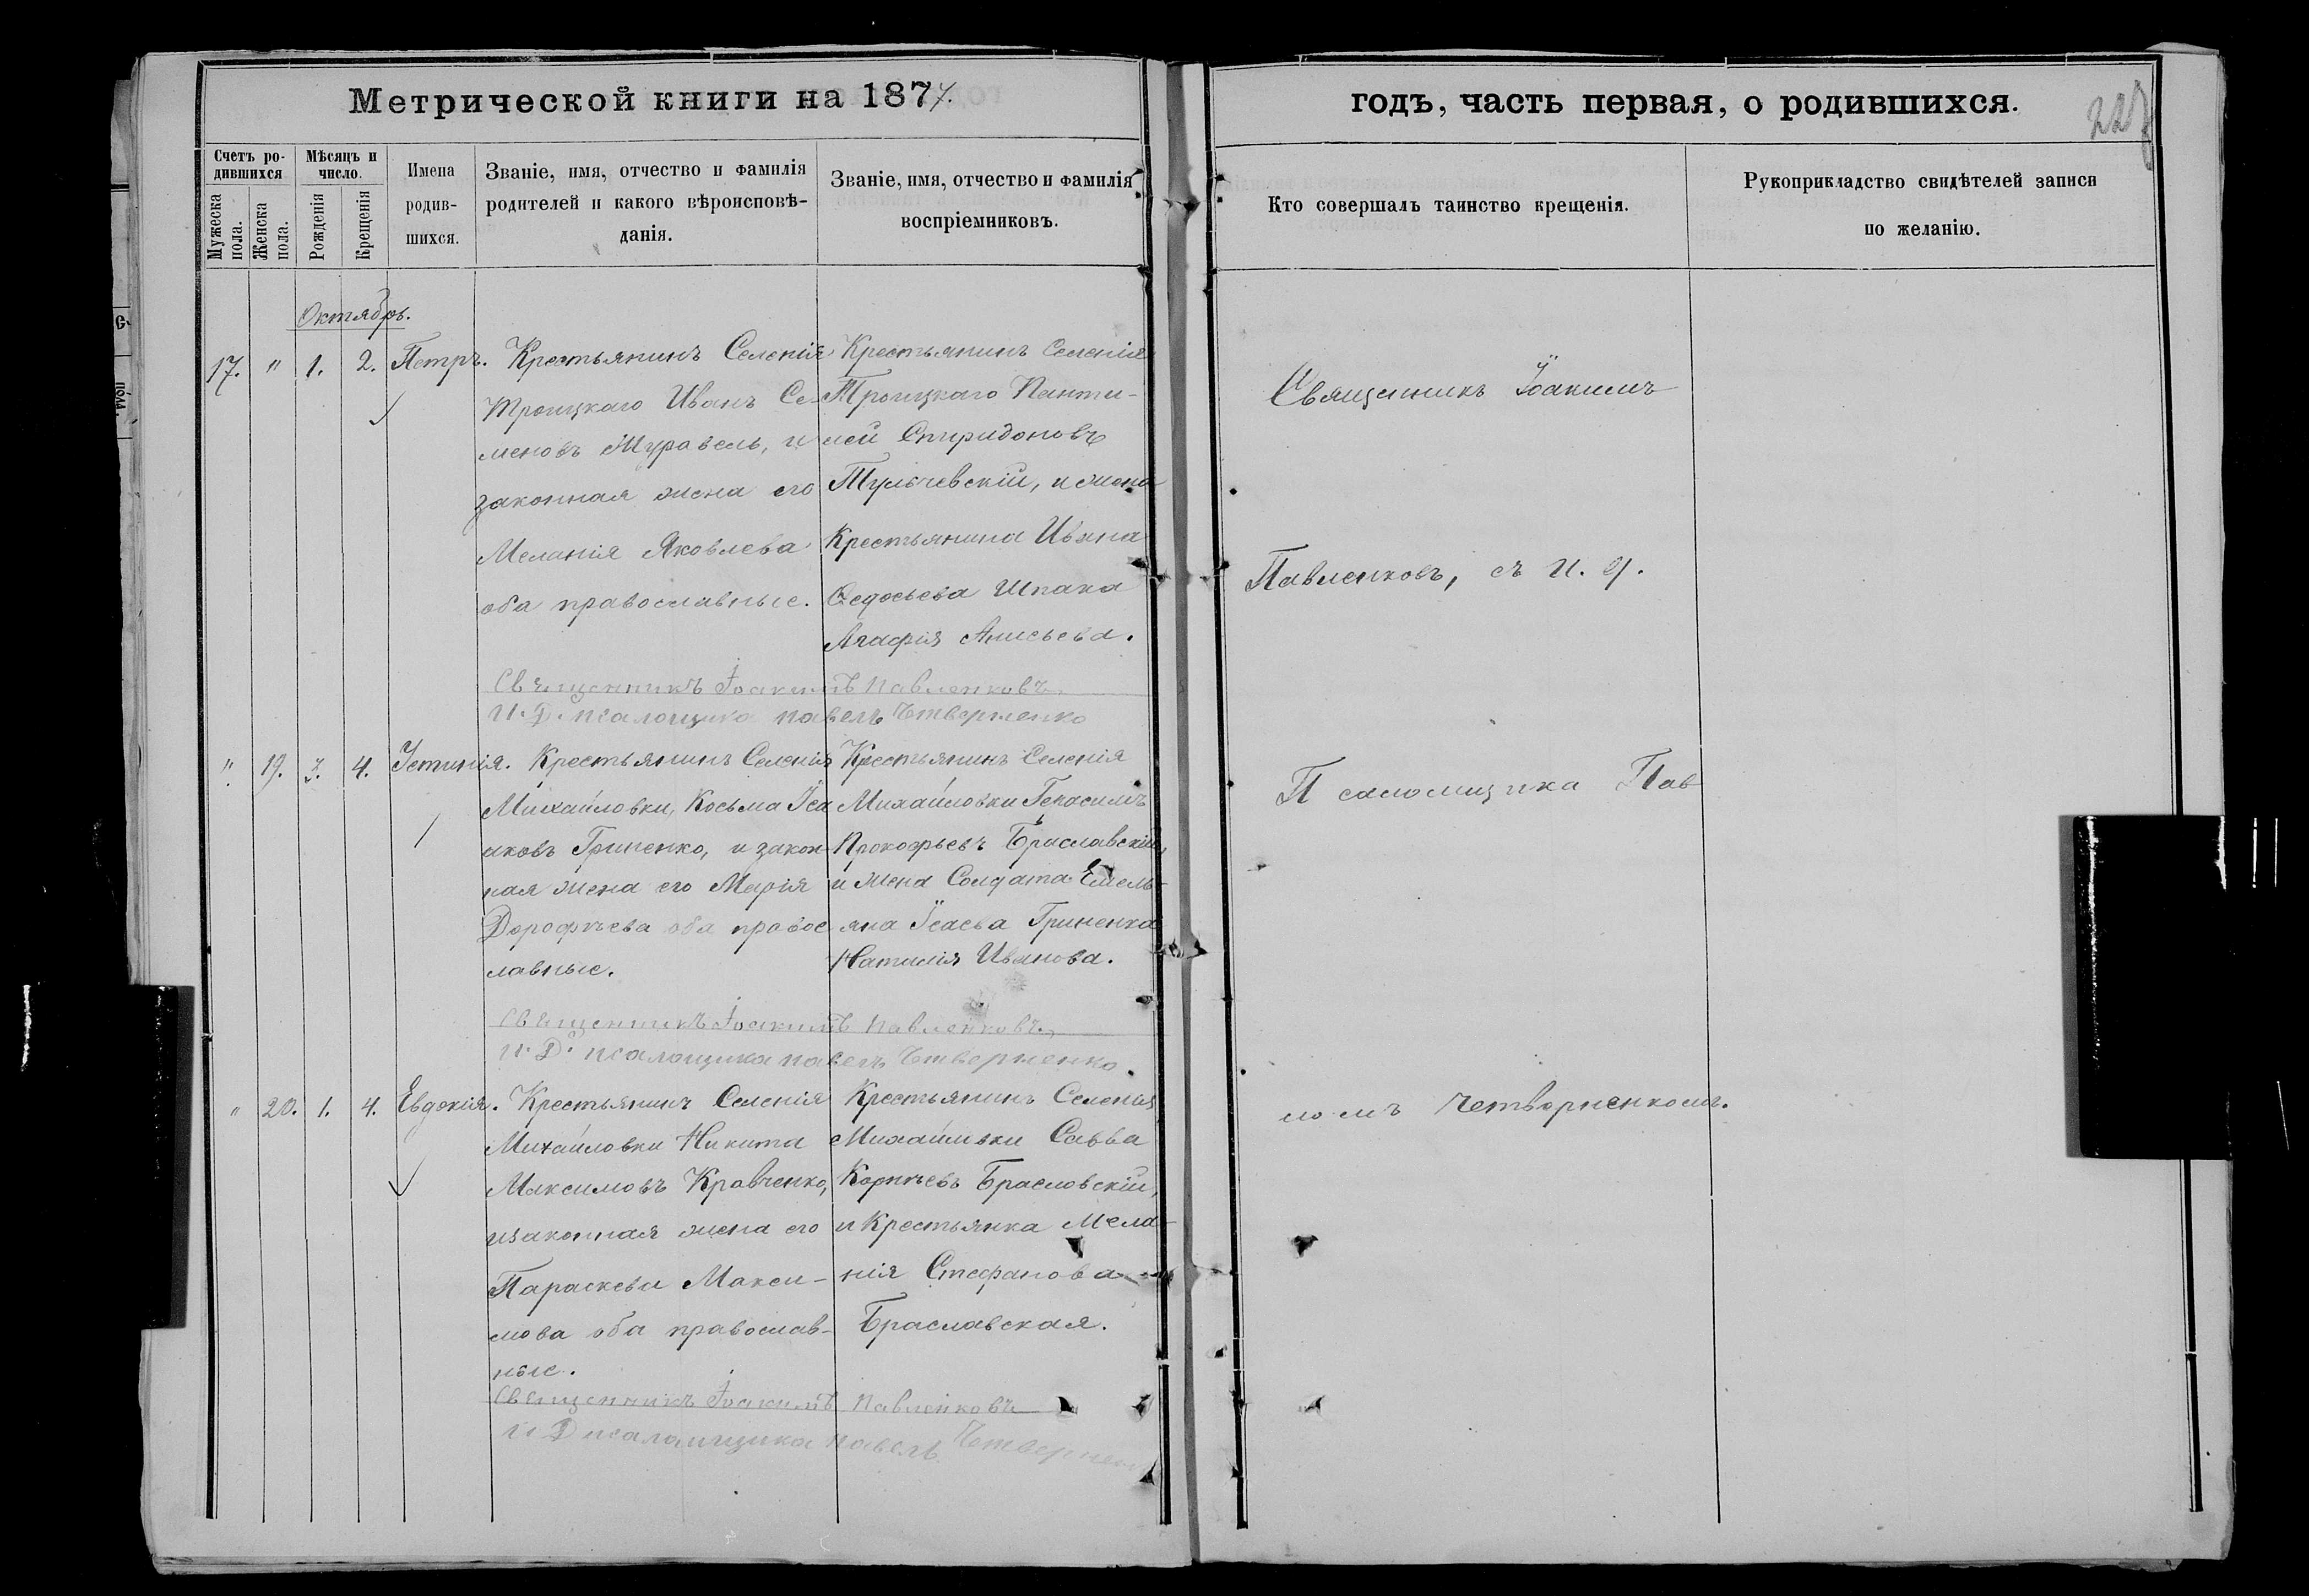 Метрической книги на 1877.
годъ, часть первая, о родившихся.
Счетъ ро-
дившихся
Мѣсяцъ и
число.
Мужеска
пола.
Женска
пола.
Рожденія
Крещенія
Имена
родив-
шихся.
Званіе, имя, отчество и фамилія
родителей и какого вѣроисповѣ-
данія.
Званіе, имя, отчество и фамилія
воспріемниковъ.
Кто совершалъ таинство крещенія.
Рукоприкладство свидѣтелей записи
по желанію.
Октябрь.
17. " 1. 2. Петръ.
Крестьянинъ Селенія
Троицкаго Иванъ Се-
меновъ Журавель, и
законная жена его
Меланія Яковлева
оба православные.
Крестьянинъ Селенія
Троицкаго Панти-
лей Спиридоновъ
Тульчевскій, и жена
Крестьянина Ивана
Федосьева Шпака
Агафія Анисьева.
Священникъ Іоакимъ Павленковъ
И. Д. псаломщика Павелъ Четверненко
" 19. 3. 4. Устинія.
Крестьянинъ Селенія
Михайловки, Косьма Іса
аковъ Гриненко, и закон
ная жена его Марія
Дорофѣева оба правос
лавные.
Крестьянинъ Селенія
Михайловки Герасимъ
Прокофьевъ Браславскій,
и жена Солдата Емель-
яна Ісаева Гриненка
Наталія Иванова.
Священникъ Іоакимъ Павленковъ
И. Д. псаломщика Павелъ Четверненко.
" 20. 1. 4. Евдокія.
Крестьянинъ Селенія
Михайловки Никита
Максимовъ Кравченко,
изаконная жена его
Параскева Макси-
мова оба православ-
ные.
Крестьянинъ Селенія
Михайловки Савва
Корнѣевъ Брасловскій,
и Крестьянка Мела-
нія Стефанова
Браславская.
Священникъ Іоакимъ Павленковъ
И Д псаломщика Павелъ Четверненко
Священникъ Іоакимъ
Павленковъ, съ и. д.
Псаломщика Пав
ломъ Четверненкомъ.